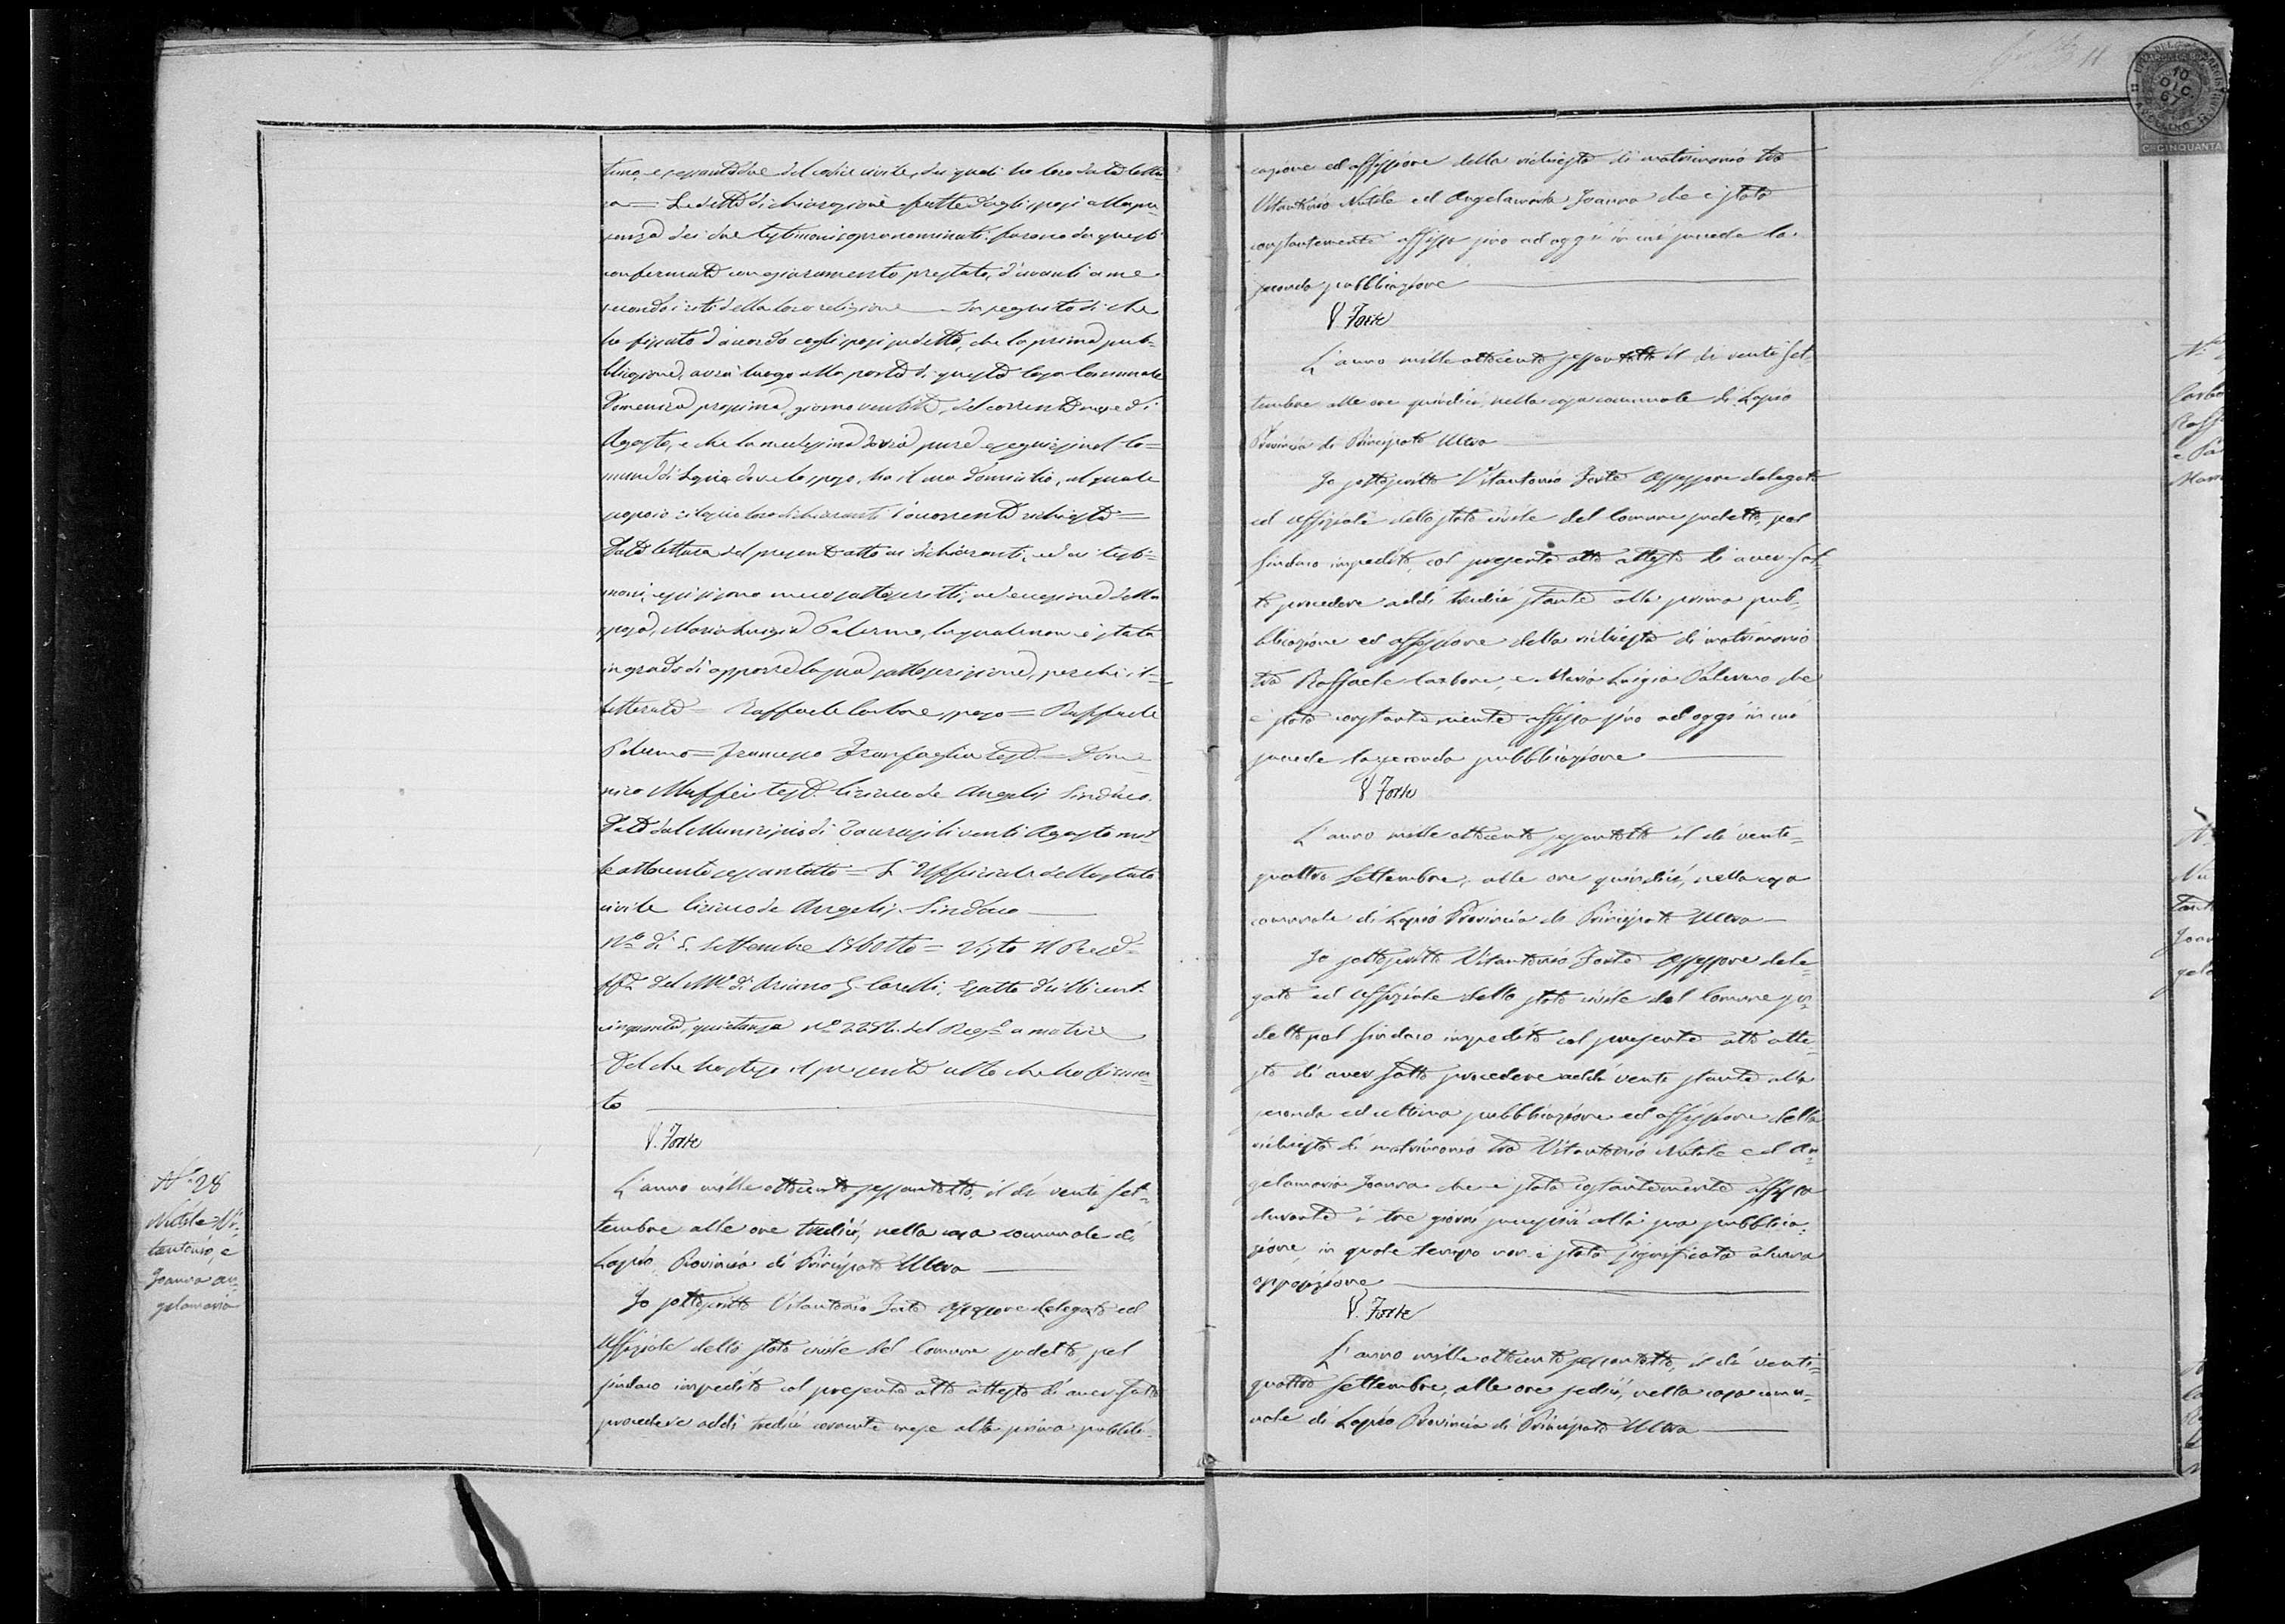 timo, e sessantadue del codice civile, dei quali ho loro data lettu-
ra = Le dette dichiarazioni fatte dagli sposi alla pre-
senza dei due testimoni sopranominati furono da questi
confermate con giuramento prestato, davanti a me
secondo i riti della loro religione — In seguito di che
ho fissato d'accordo cogli sposi sudetti, che la prima pub-
blicazione, avrà luogo alla porta di questa Casa Comunale
Domenica prossima, giorno ventitre, del corrente mese di
Agosto, e che la medesima dovrà pure eseguirsi nel Co=
mune di Lapio dove lo sposo, ha il suo domicilio, al quale
dichiaranti l'occorrente richiesta =
Data lettura del presente atto ai dichiaranti, ed ai testi=
moni, essi si sono meco sottoscritti, ad eccezione della
sposa, Maria Luigia Palermo, la quale non è stata
in grado di apporre la sua sottoscrizione, perchè il=
letterata = Raffaele Carbone, sposo = Raffaele
Palermo = Francesco Tranfaglia test. = Dome=
nico Maffei test. Ciriaco de Angelis Sindaco.
Data dal Municipio di Taurasi li venti Agosto mil-
leottocento sessantotto = L'Ufficiale dello stato
civile Ciriaco de Angelis Sindaco —
N.° di 5. Settembre 1860tto = Visto Il Presid.
ff. del M.° di Ariano G. Carelli, Esatto dritti cent.
cinquanta, quietanza N.° 2281. del Reg.° a matrice
Del che ho steso il presente atto che ho firma-
to
V. Forte
N.° 28
Nutile Vi-
tantonio, e
Joanna An-
gelamaria
L'anno mille ottocento sessantotto, il dì venti Set-
tembre alle ore tredici, nella casa comunale di
Lapio Provincia di Principato Ultra —
Io sottoscritto Vitantonio Forte assessore delegato ed
uffiziale dello stato civile del Comune sudetto, pel
sindaco impedito col presente atto attesto di aver fatto
procedere addì tredici corrente mese alla prima pubbli-
cazione ed affissione della richiesta di matrimonio tra
Vitantonio Nutile ed Angelamaria Joanna che è stata
costantemente affissa sino ad oggi in cui succede la
seconda pubblicazione
V. Forte
L'anno mille ottocento sessantotto il dì venti Set-
tembre alle ore quindici, nella casa comunale di Lapio
Provincia di Principato Ultra
Io sottoscritto Vitantonio Forte Assessore delegato
ed uffiziale dello stato civile del Comune sudetto, pel
Sindaco impedito, col presente atto attesto di aver fat-
to procedere addì tredici stante alla prima pub-
blicazione ed affissione della richiesta di matrimonio
tra Raffaele Carbone, e Maria Luigia Palermo che
è stata costantemente affissa sino ad oggi in cui
succede la seconda pubblicazione
V. Forte
L'anno mille ottocento sessantotto il dì venti=
quattro Settembre, alle ore quindici, nella casa
comunale di Lapio Provincia di Principato Ultra —
Io sottoscritto Vitantonio Forte Assessore dele-
gato ed uffiziale dello stato civile del Comune su-
detto, pel Sindaco impedito col presente atto atte-
sto di aver fatto procedere addì venti stante alla
seconda ed ultima pubblicazione ed affissione della
richiesta di matrimonio tra Vitantonio Nutile ed An-
gelamaria Joanna che è stata costantemente affissa
durante i tre giorni successivi alla sua pubblica-
zione, in quale tempo non è stata significata alcuna
opposizione
V. Forte
L'anno mille ottocento sessantotto, il dì venti-
quattro Settembre, alle ore sedici, nella casa comu-
nale di Lapio Provincia di Principato Ultra —
11
10
DIC
67
AVELLINO
CMI CINQUANTA